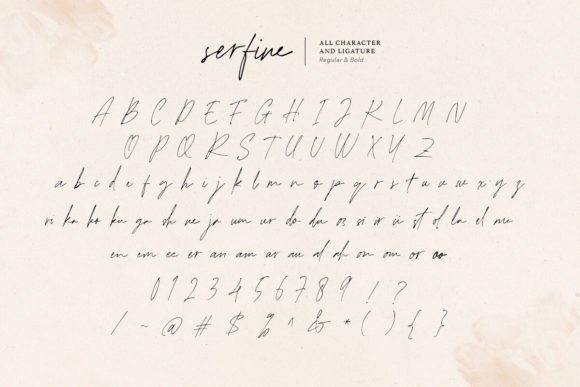 serfine
ALL CHARACTER
AND LIGATURE
Regular & Bold
A B C D E F G H I J K L M N
O P Q R S T U V W X Y Z
a b c d e f g h i j k l m n o p q r s t u v w x y z
ri ka ko ku ga sh ve ja um ur do du os si ir ii st ol la el me
en em ee er an am ar au al ah on om or oo
0 1 2 3 4 5 6 7 8 9 ! ?
/ ~ @ # $ % ^ & * ( ) { }